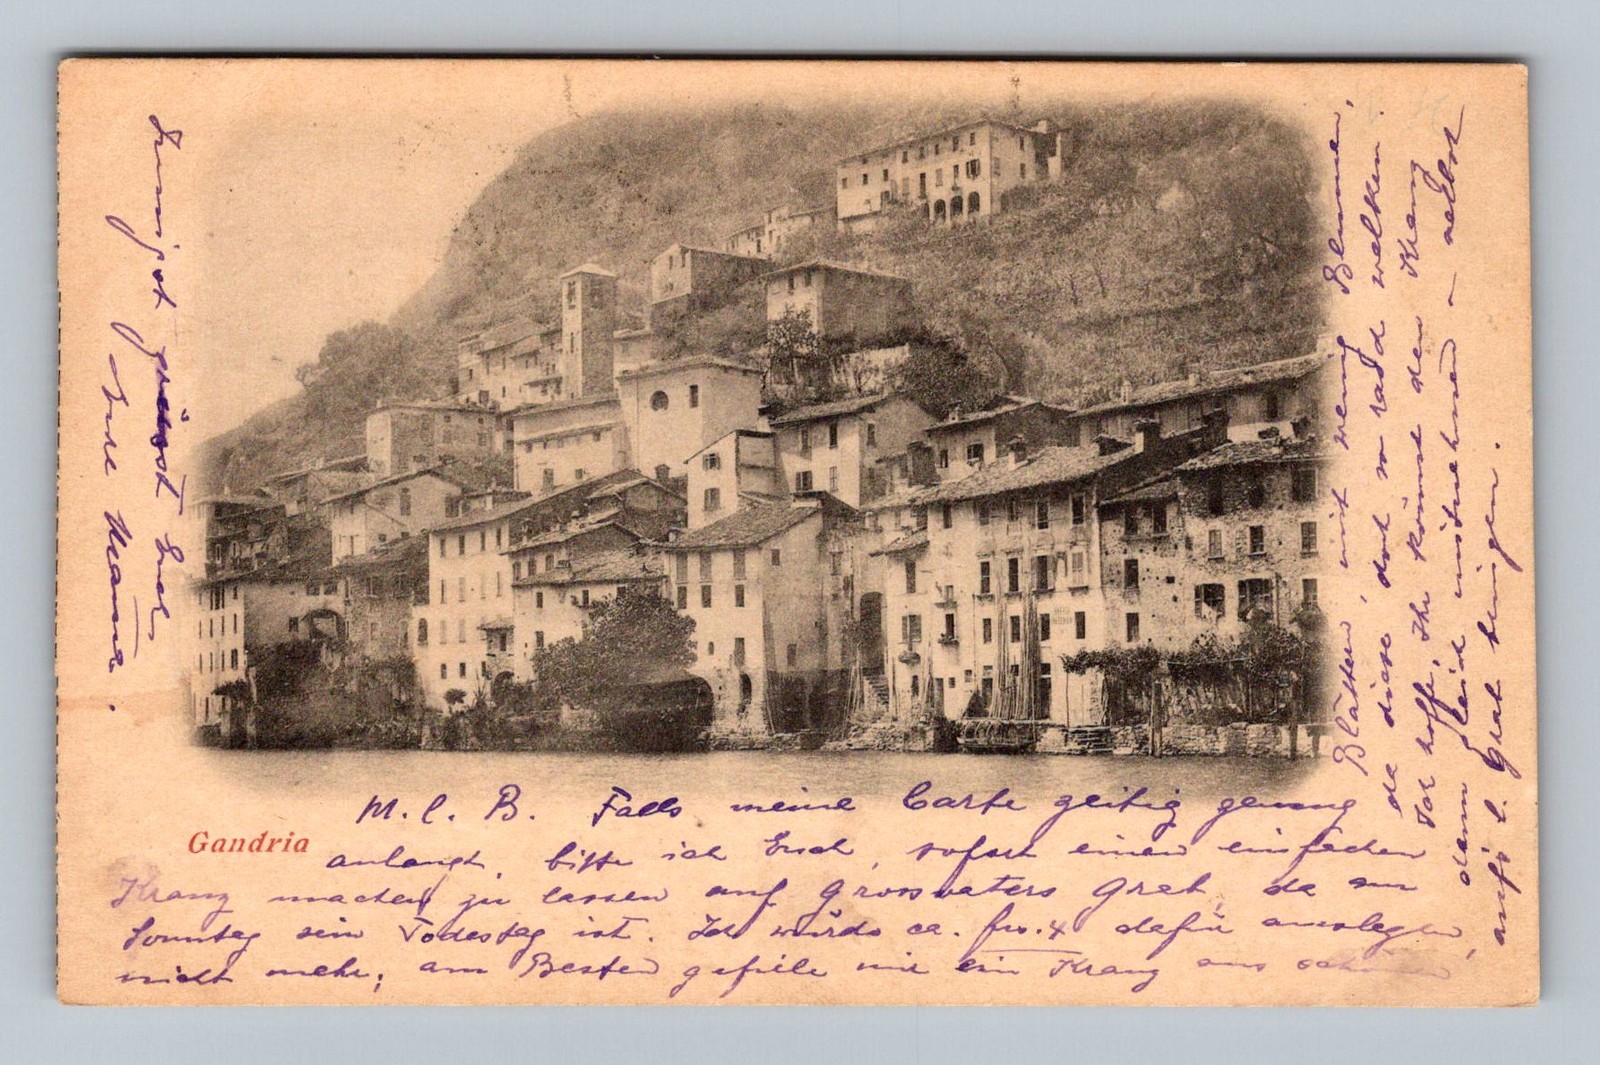 Gandria
M. l. B. Falls meine Carte zeitig genug
anlangt, bitte ich Euch, sofort einen einfachen
Kranz machen zu lassen auf Grossvaters Grab, da am
Sonntag sein Todestag ist. Ich würde ca. frs. 4 dafür auslegen,
nicht mehr; am Besten gefiele mir ein Kranz aus schönen
Blättern, mit wenig Blumen,
da diese dort so rasch welken.
Ich hoffe, Ihr könnt den Kranz
dann gleich mitnehmen – selbst
aufs l. Grab bringen.
Innigst grüsst Euch
Eure Mama.